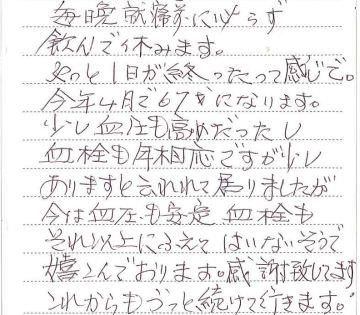 毎晩就寝前に必らず
飲んで休みます。
やっと1日が終ったって感じで。
今年4月で67才になります。
少し血圧も高めだったし
血栓も年相応ですが少し
ありますと云れれて居りましたが
今は血圧も安定 血栓も
それ以上にふえてはいないそうで
嬉こんでおります。感謝致してます
これからもずっと続けて行きます。